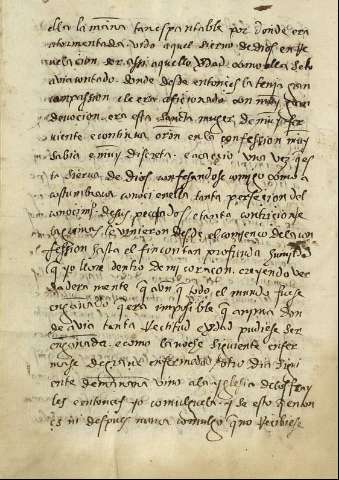 ella la mãna tan espantable por donde era
atormentada vido aquel siervo de dios en Re
velacion ser assi aquello Vdad como ella se lo
avia contado donde desde entonces la tenia gran
compassion e le era aficionado con muy
devocion era esta sancta muger de muy fer
viente e continua oron en la confession muy
sabia e muy discreta. e acaecio una vez q̃ es
ta sierva de dios confesandose comigo como a
costumbrava conoci en ella tanta perfecion del
conocimiº de sus pecados e tanta contricion e
lagrimas le vinieron desde el comienço de la con
fession hasta el fin con tan profunda humildad
q̃ yo llore dentro de mi coraçon. creyendo ver
daderamente q̃ aun q̃ todo el mundo fuese
engañado q̃ era impossible q̃ anima don
de avia tanta Rectitud e vdad pudiese ser
engañada. e como la noche siguiente enfer
mase de grave enfermedad otro dia sigui
ente de mañana vino a la iglesia de los fray
les e entonces yo comulguela y de esto
es ni despues nunca comulgo q̃ no Recibiese